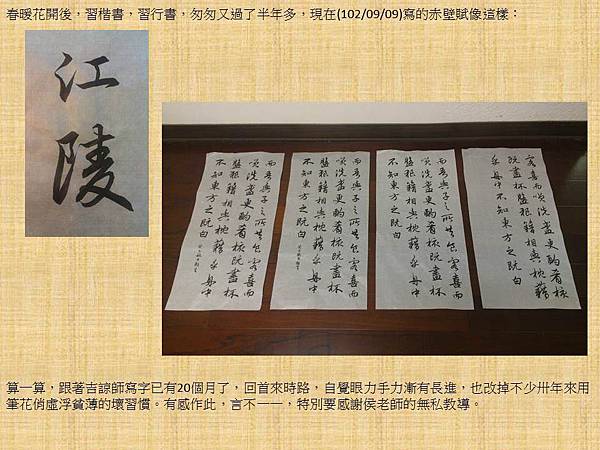 春暖花開後，習楷書，習行書，匆匆又過了半年多，現在(102/09/09)寫的赤壁賦像這樣：
江
陵
而吾與子之所共食客喜而
笑洗盞更酌肴核既盡杯
盤狼藉相與枕藉乎舟中
不知東方之既白
而吾與子之所共食客喜而
笑洗盞更酌肴核既盡杯
盤狼藉相與枕藉乎舟中
不知東方之既白
而吾與子之所共食客喜而
笑洗盞更酌肴核既盡杯
盤狼藉相與枕藉乎舟中
不知東方之既白
客喜而笑洗盞更酌肴核
既盡杯盤狼藉相與枕藉
乎舟中不知東方之既白
算一算，跟著吉諒師寫字已有20個月了，回首來時路，自覺眼力手力漸有長進，也改掉不少卅年來用
筆花俏虛浮貧薄的壞習慣。有感作此，言不一一，特別要感謝侯老師的無私教導。